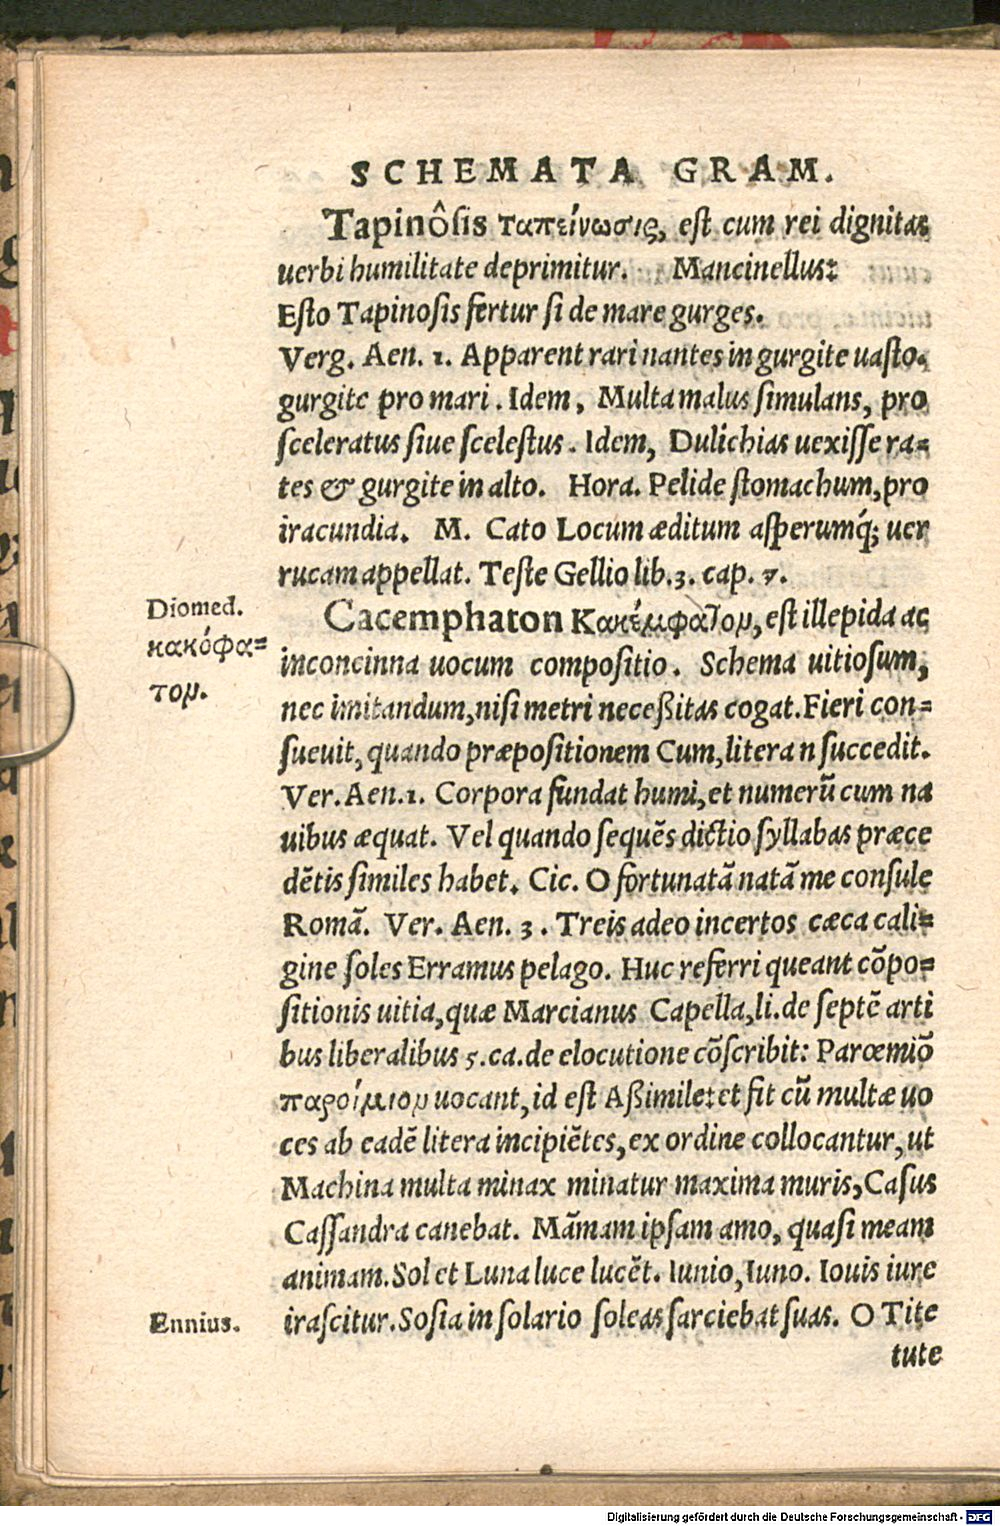 SCHEMATA GRAM.
Tapinôsis ταπείνωσις, est cum rei dignitas
uerbi humilitate deprimitur. Mancinellus:
Esto Tapinosis fertur si de mare gurges.
Verg. Aen. 1. Apparent rari nantes in gurgite uasto.
gurgite pro mari. Idem, Multa malus simulans, pro
sceleratus siue scelestus. Idem, Dulichias uexisse ra=
tes & gurgite in alto. Hora. Pelide stomachum, pro
iracundia. M. Cato Locum æditum asperumq́; uer
rucam appellat. Teste Gellio lib. 3. cap. 7.
Diomed.
κακόφα=
τον.
Cacemphaton Κακέμφατον, est illepida ac
inconcinna uocum compositio. Schema uitiosum,
nec imitandum, nisi metri neceßitas cogat. Fieri con=
sueuit, quando præpositionem Cum, litera n succedit.
Ver. Aen. 1. Corpora fundat humi, et numerũ cum na
uibus æquat. Vel quando sequẽs dictio syllabas præce
dẽtis similes habet. Cic. O fortunatã natã me consule
Romã. Ver. Aen. 3. Treis adeo incertos cæca cali=
gine soles Erramus pelago. Huc referri queant cõpo=
sitionis uitia, quæ Marcianus Capella, li. de septẽ arti
bus liberalibus 5. ca. de elocutione cõscribit: Parœmiõ
παροίμιον uocant, id est Aßimile: et fit cũ multæ uo
ces ab eadẽ litera incipiẽtes, ex ordine collocantur, ut
Machina multa minax minatur maxima muris, Casus
Cassandra canebat. Mãmam ipsam amo, quasi meam
animam. Sol et Luna luce lucẽt. Iunio, Iuno. Iouis iure
Ennius.
irascitur. Sosia in solario soleas sarciebat suas. O Tite
tute
Digitalisierung gefördert durch die Deutsche Forschungsgemeinschaft - DFG